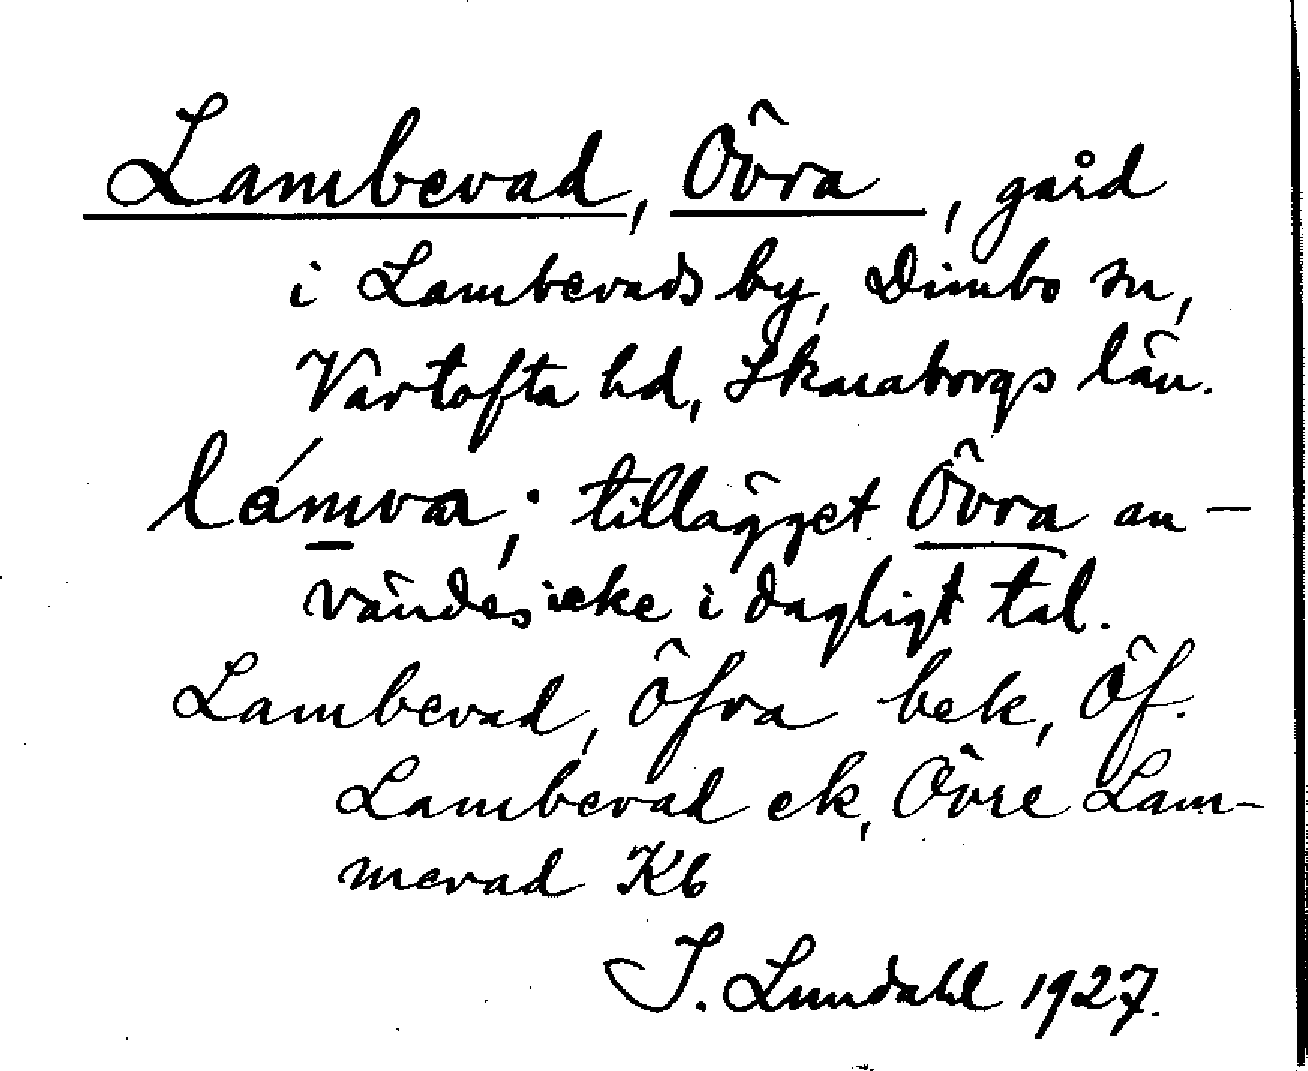 Lambevad, Övra, gård
i Lambevads by, Dimbo sn,
Vartofta hd, Skaraborgs län.
lámva; tillägget Övra an-
vändes icke i dagligt tal.
Lambevad, Öfra bek, Öf.
Lambevad ek, Övre Lam-
mevad Kb
I. Lundahl 1927.